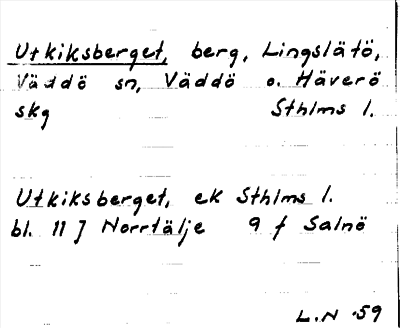 Utkiksberget, berg, Lingslätö,
Väddö sn, Väddö o. Häverö
skg Sthlms l.
Utkiksberget, ek Sthlms l.
bl. 11 J Norrtälje 9 f Salnö
L.N -59